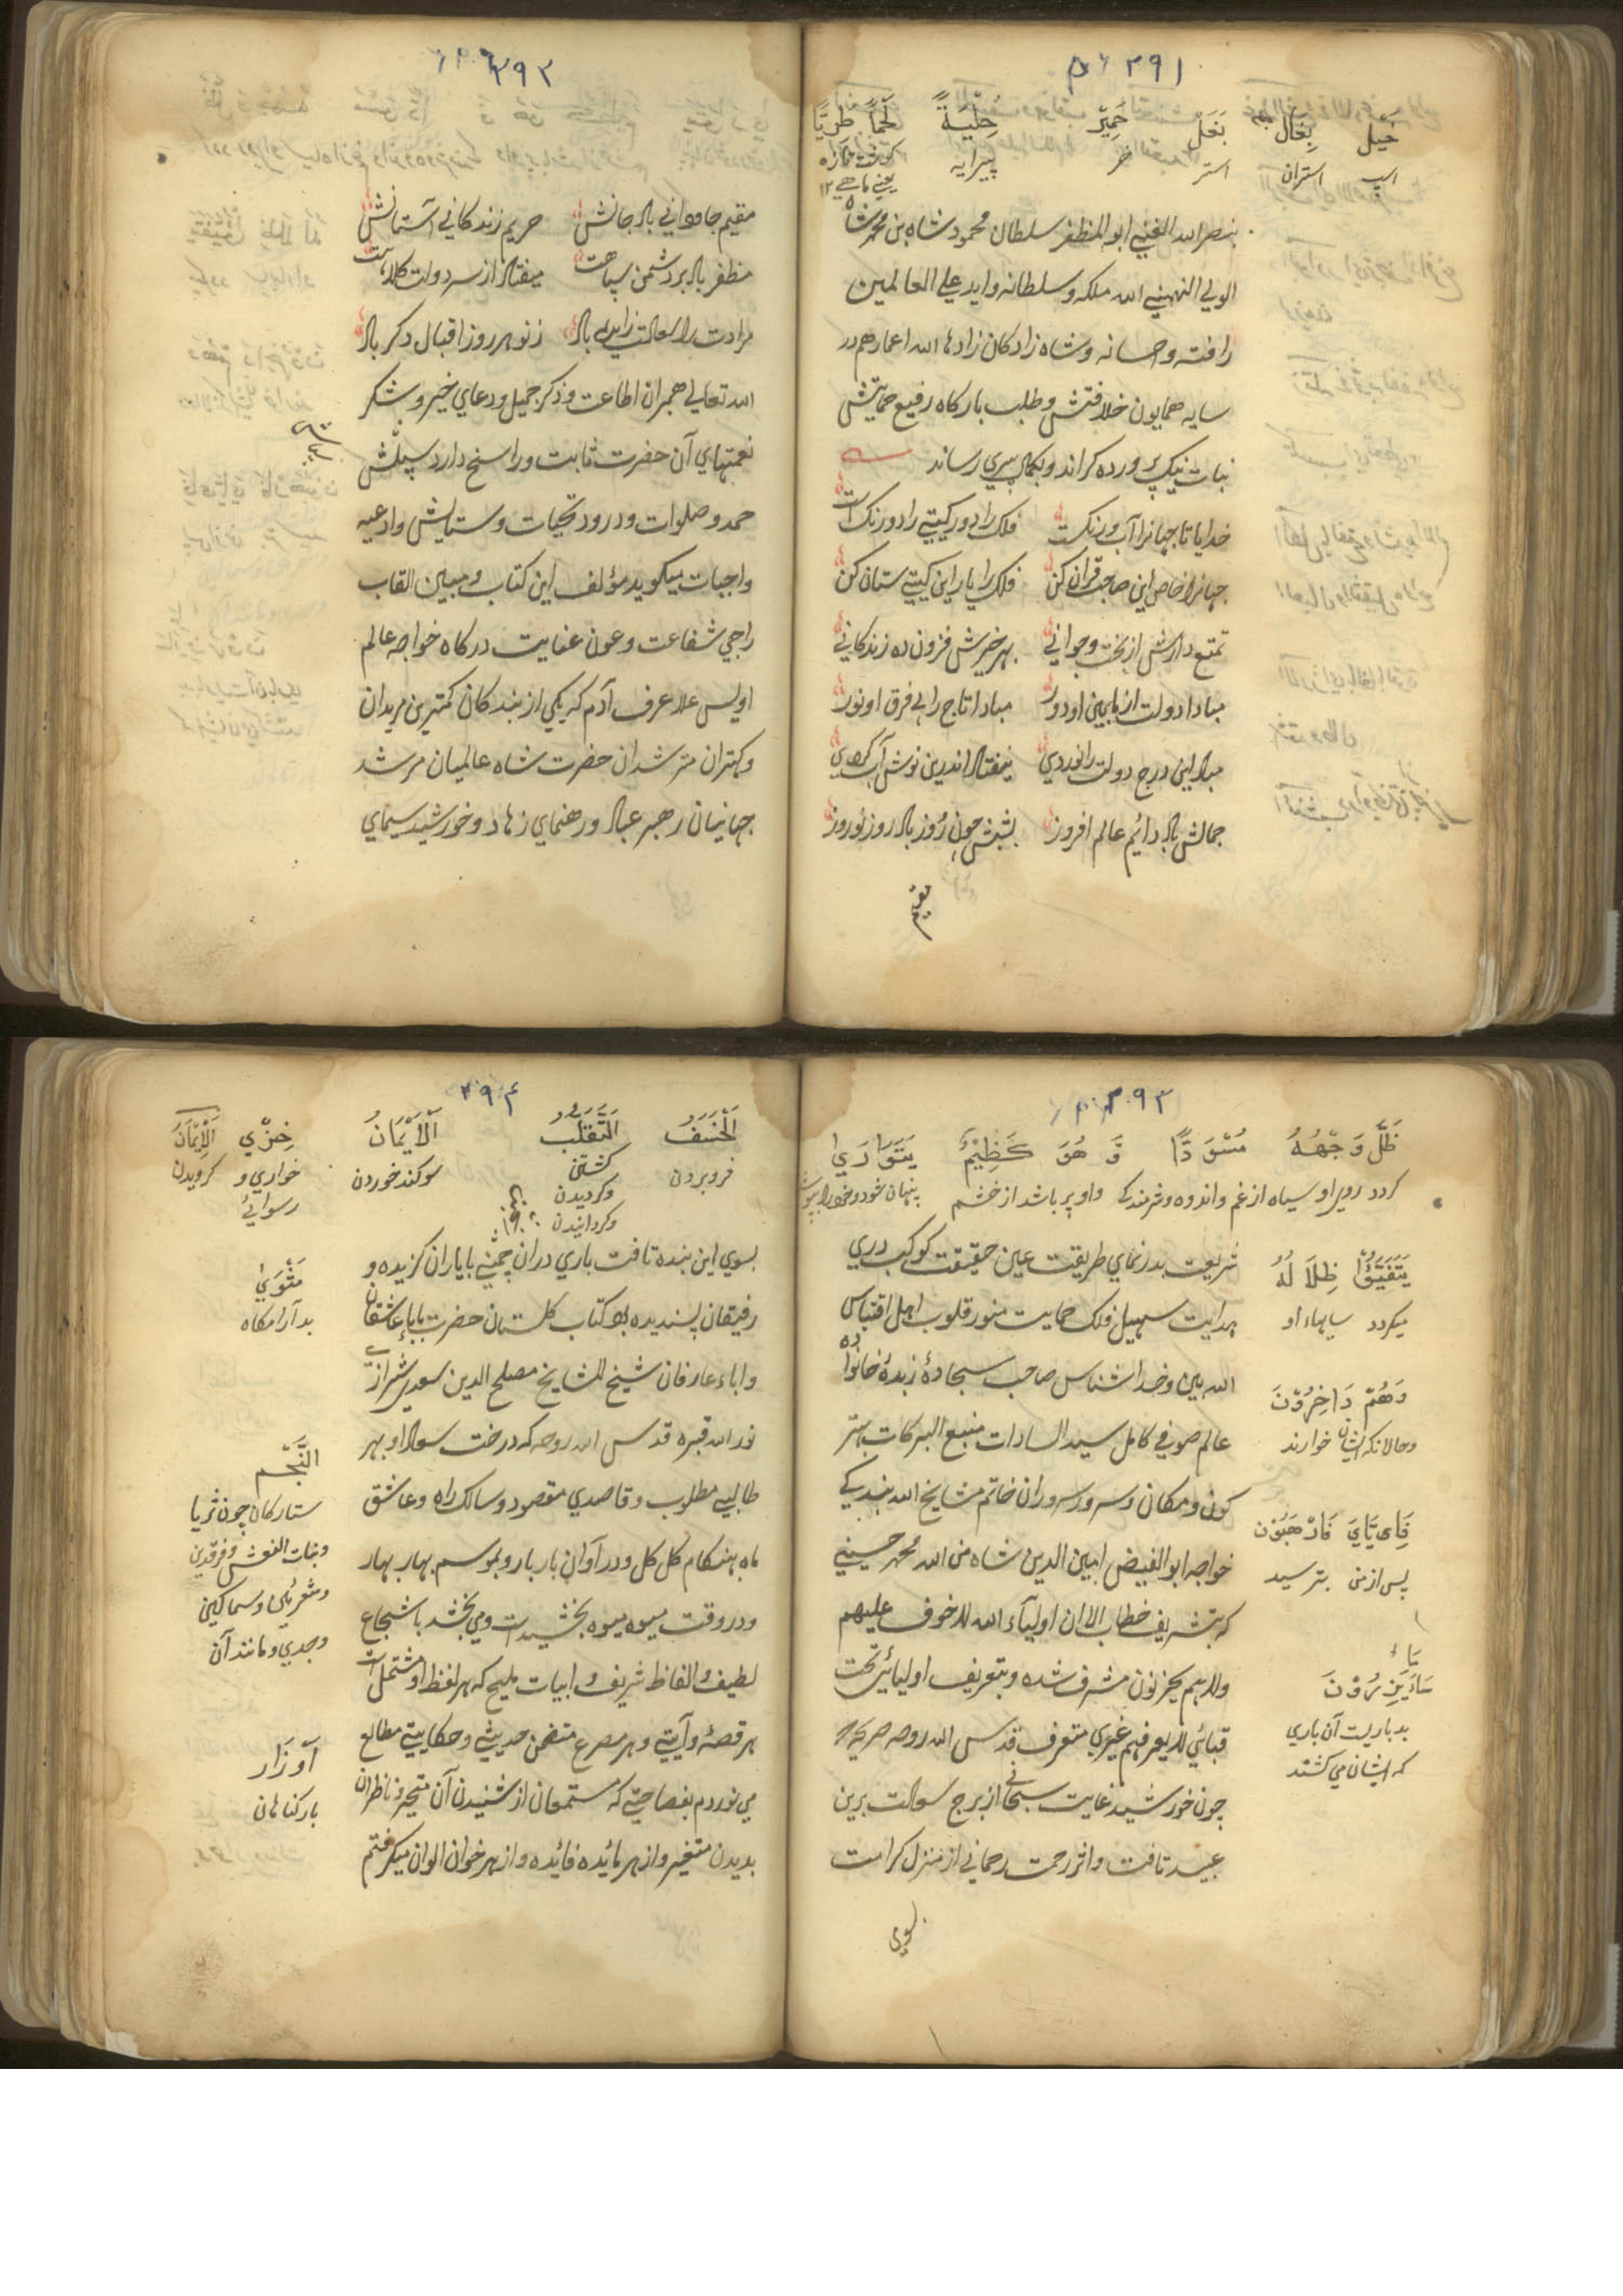 ۳۹۱
خَیْل بِغَال بَغَلْ حَمِیْر حِلْیَةً لَحْمًا طَرِیًّا
اسپ استران استر خر پیرایه کوشت تازه
یعنی ماهی ۱۲
بنصر الله الغنی ابو المظفر سلطان محمود شاه بن محمد شاه
الولی البهمنی الله ملکه و سلطانه واید علی العالمین
رافته و احسانه و شاه زادکان زادها الله اعمارهم در
سایه همایون خلافتش و طلب بارکاه رفیع حمایتش
نبات نیک پرورده کراند و بکمال پیری رساند
خدایا تا جهانرا آب و رنکست فلک را دور کیتی را درنک است
جهانرا خاص این صاحب قران کن فلک را یار این کیتی ستان کن
تمتع دارش از بخت و جوانی بهر خیرش فزون ده زندکانی
مبادا دولت از پایین او دور مبادا تاج را بی فرق او نور
مباد این درج دولت را نوردی نیفتاد اندرین نوش آب کردی
جمالش باد دایم عالم افروز بشبش چون روز باد روز نوروز
مقیم
۳۹۲
مقیم جاودانی باد جانش حریم زندکانی آستانش
مظفر باد بر دشمن سپاهت میفتاد از سر دولت کلاهت
مرادت را سعادت زاید باد ز نو هر روز اقبال دکر باد
الله تعالی همبران اطاعت و ذکر جمیل و دعای خیر و شکر
نعمتهای آن حضرت ثابت و راسخ دارد سپلش
حمد و صلوات و درود تحیات و ستایش و ادعیه
واجبات میکوید مؤلف این کتاب و مبین القاب
راجی شفاعت و عون عنایت درکاه خواجه عالم
اولیس علا عرف آدم که یکی از بندکان کمترین مریدان
و کهتران مترشدان حضرت شاه عالمیان مرشد
جهانیان رهبر عباد و رهنمای زهاد و خورشید سیمای
۳۹۳
ظَلَّ وَجْهُهُ مُسْوَدًّا وَ هُوَ کَظِیْمٌ یَتَوَارَی
کردد روی او سیاه از غم و اندوه و شرمندکی و او پر باشد از خشم پنهان شود و خود را بپوشد
شریعت بدر نمای طریقت عین حقیقت کوکب دری
هدایت سهیل فلک حمایت منور قلوب اهل اقتباس
الله بین و خدا شناس صاحب سجاده زبده خانواده
عالم صوفی کامل سید السادات منبع البرکات بهتر
کون و مکان و سر ورسروران خاتم مشایخ الله بندکی
خواجه ابو الفیض امین الدین شاه من الله محمد حسینی
که بتشریف خطاب الا ان اولیآء الله لا خوف علیهم
ولا هم یحزنون مشرف شده و بتعریف اولیائی تحت
قبائی لا یعرفهم غیری متعرف قدس الله روحه
چون خورشید غایت سبحانی از برج سعادت برین
عبید تافت و اثر رحمت رحمانی از منزل کرامت
یَتَفَیَّؤُا ظِلَالَهُ
میکردد سایهاء او
وَهُمْ دَاخِرُوْنَ
و حالانکه ایشان خوارند
فَاِیَّایَ فَارْهَبُوْن
پس از من بترسید
سَاءَ یَزِرُوْنَ
بد باریست آن باری
که ایشان می کشند
بسوی
۳۹۴
اَلْخَسَفُ اَلتَّقَلُّب اَلْاَیْمَانُ خِزْی اَلْاِیْمَانُ
فروبردن کشتن سوکند خوردن خواری و کرویدن
و کردیدن رسوائے
و کردانیدن
بسوی این بنده تافت باری دران چمنی با یاران کزیده و
رفیقان پسندیده بود کتاب کلستان حضرت باباء عاشقان
و اباء عارفان شیخ المشایخ مصلح الدین سعدی شیرازی
نور الله قبره قدس الله روحه که درخت سواد او بهر
طالبی مطلوب و قاصدی مقصود و سالک راه و عاشق
ماه بهنکام کل کل و در آوان بار بار و بموسم بهار بهار
و در وقت میوه میوه بخشیدست و می بخشد باشجاع
لطیف و الفاظ شریف و ابیات ملیح که هر لفظ او مشتمل است
هر قصهٔ و آیتی و هر مصرع متضمن حدیثی و حکایتی مطالع
می نوردم بفصاحتی که مستمعان از شنیدن آن متحیر و ناظران
بدیدن متغیر و از هر مائده فائده و از هر خوان الوان میکرفتم
مَثْوَیٰ
بد آرامکاه
النَّجْم
ستارکان چون ثریا
و بنات النعش و فرقدین
و جدی و مانند آن
اَوْزَار
بار کناهان